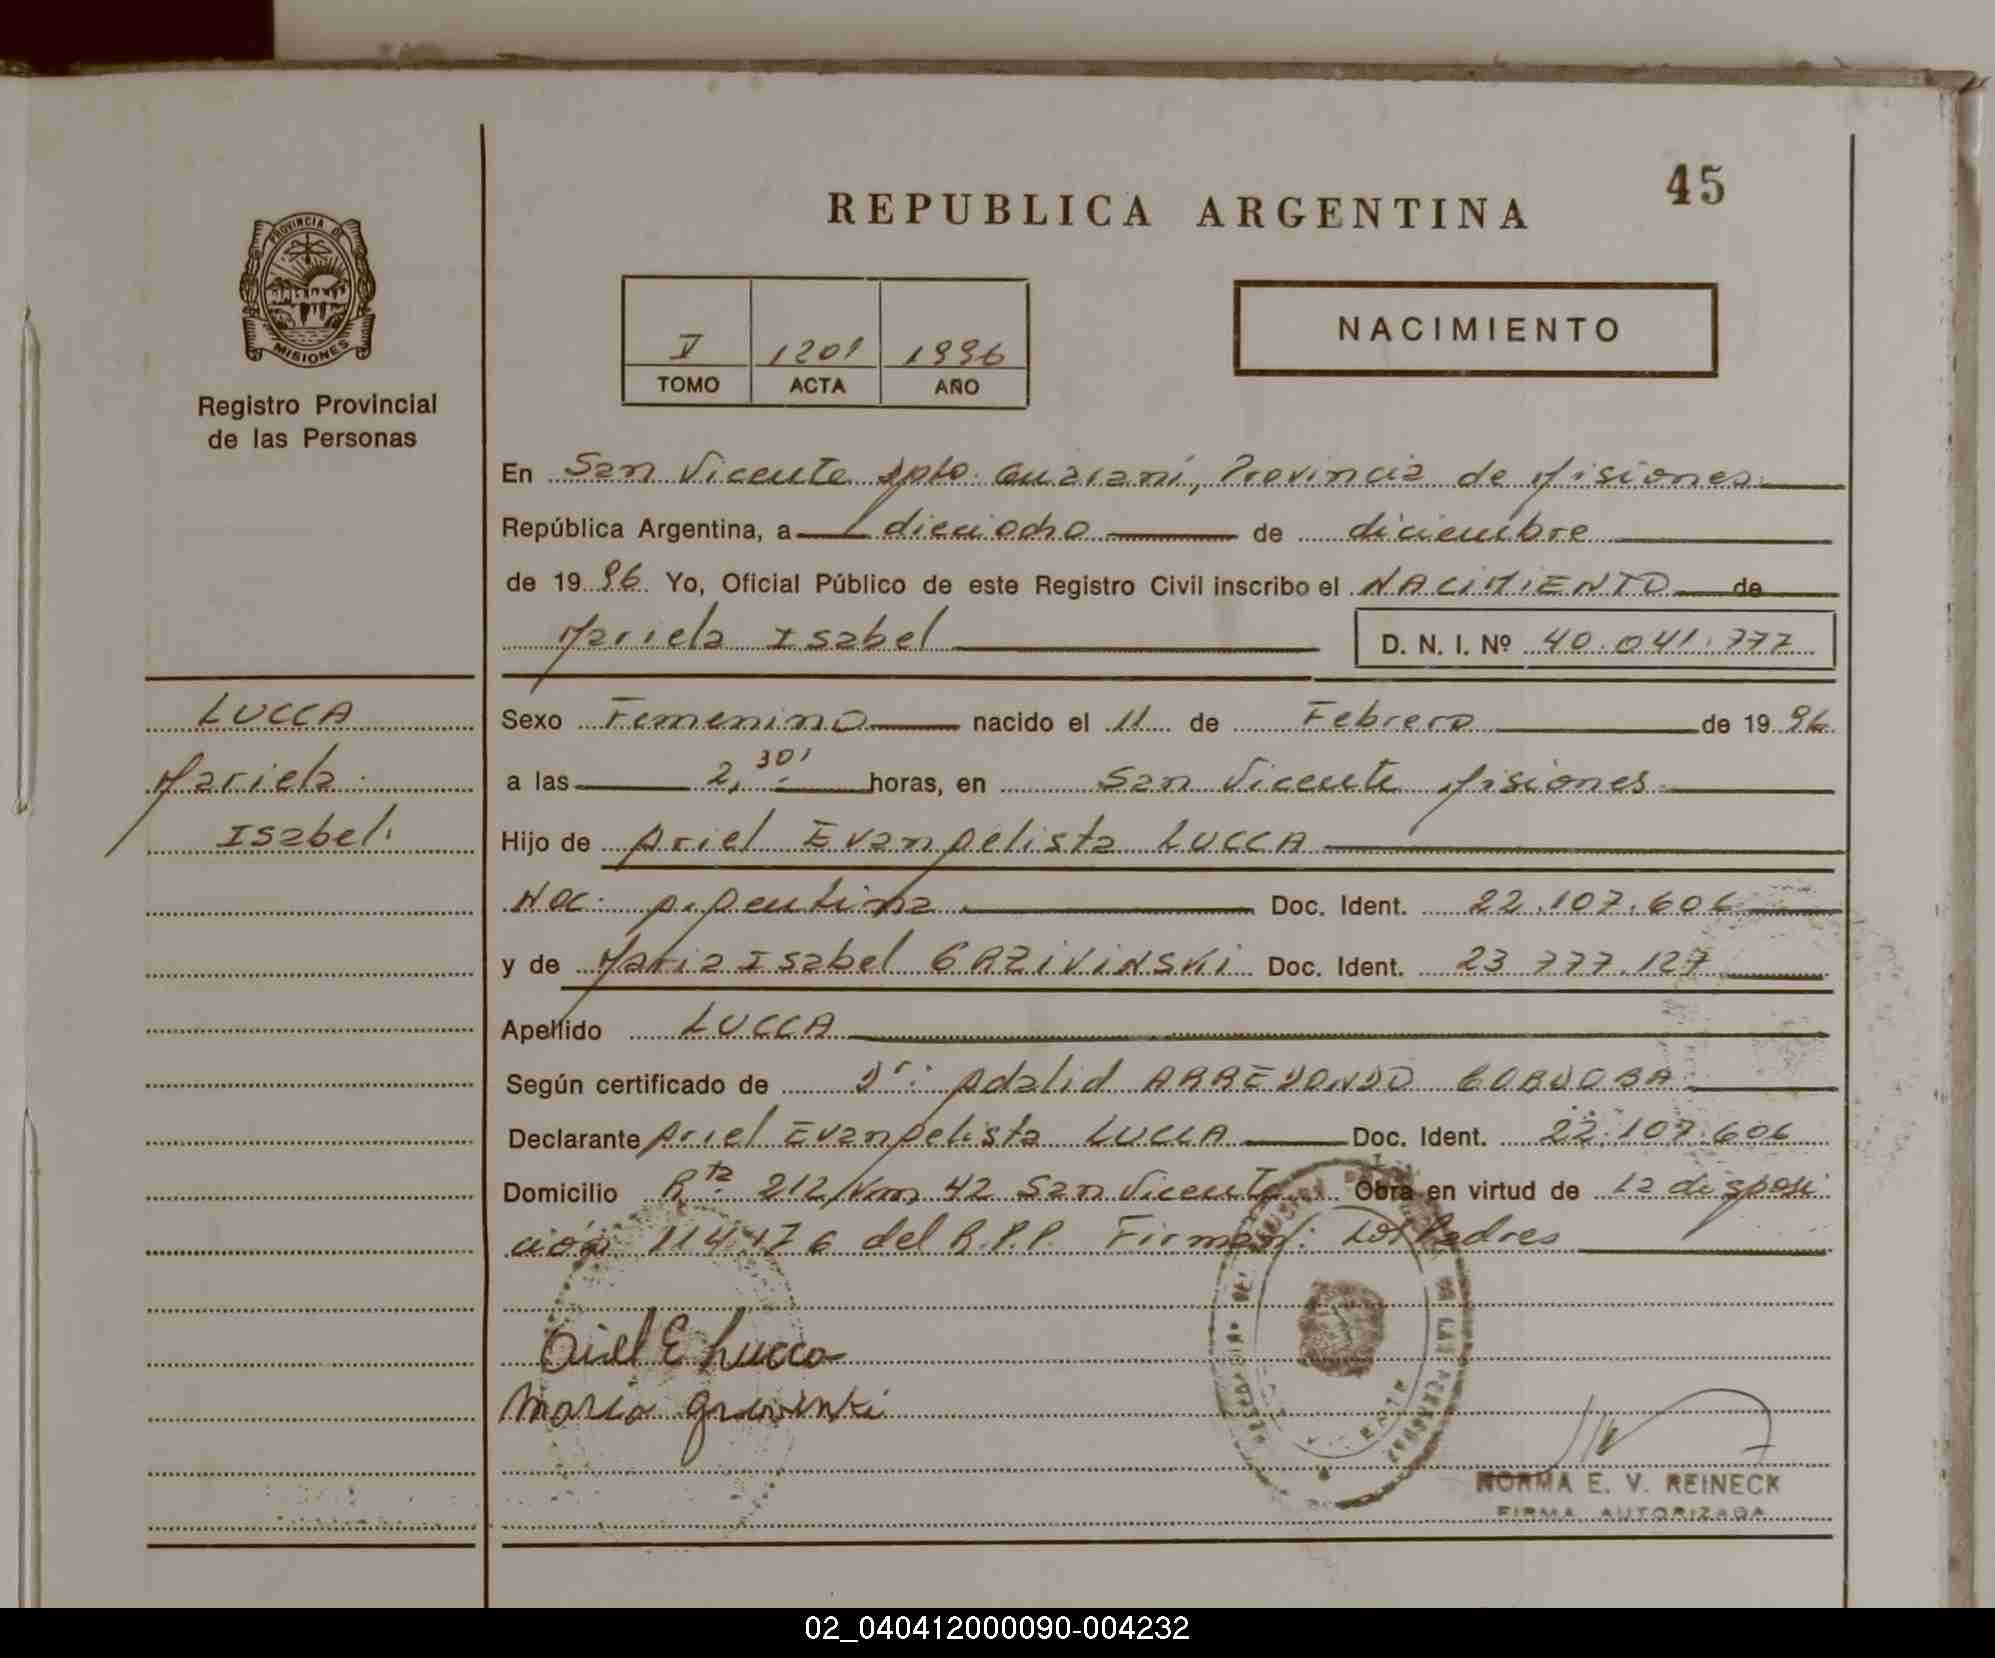 45
REPUBLICA ARGENTINA
PROVINCIA DE
MISIONES
Registro Provincial
de las Personas
V 1201 1996
TOMO ACTA AÑO
NACIMIENTO
En San Vicente Dpto. Guaraní, Provincia de Misiones
República Argentina, a dieciocho de diciembre
de 19 96 Yo, Oficial Público de este Registro Civil inscribo el NACIMIENTO de
Mariela Isabel D. N. I. Nº 40.041.777
LUCCA
Mariela
Isabel.
Sexo Femenino nacido el 11 de Febrero de 19 96
a las 2,30' horas, en San Vicente Misiones
Hijo de Ariel Evangelista LUCCA
Nac: Argentina Doc. Ident. 22.107.606
y de Maria Isabel Doc. Ident. 23 777.127
Apellido LUCCA
Según certificado de Dr: Adalid ARREDONDO CORDOBA
Declarante Ariel Evangelista LUCCA Doc. Ident. 22.107.606
Domicilio Rta 212 Km 42 San Vicente Obra en virtud de la disposi
ción del R.P.P. Firman: Los Padres
Ariel E Lucca
Maria
DE LAS PERSONAS
NORMA E. V. REINECK
FIRMA AUTORIZADA
02_040412000090-004232